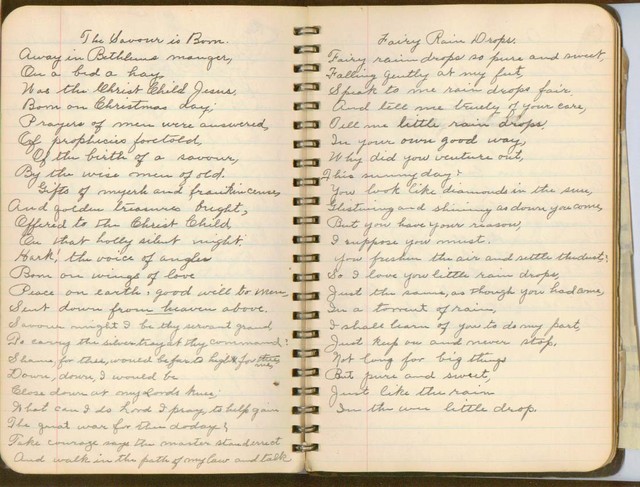 The Savour is Born.
Away in Bethlems manger,
On a bed a hay
Was the Christ Child Jesus,
Born on Christmas day;
Prayers of men were answered,
Of prophecies foretold,
Of the birth of a savour,
By the wise men of old.
Gifts of myerh and frankincense,
And golden treasures bright,
Offered to the Christ Child
On that holly silent night.
Hark! the voice of angles
Born on wings of love
Peace on earth, good will to men,
Sent down from heaven above.
Savour might I be thy servant grand
To carry the silver tray at thy command!
Shame, for thee, would be far to high for me,
Down, down, I would be
Close down at my Lords knee
What can I do Lord I pray, to help gain
The great war for thee today?
Take courage says the master stand erect
And walk in the path of my law and talk
Fairy Rain Drops.
Fairy rain drops so pure and sweet,
Falling gently at my feet,
Speak to me rain drops fair,
And tell me truely of your care,
Tell me little rain drops.
In your own good way,
Why did you venture out,
This sunny day?
You look like diamonds in the sun,
Glistening and shining as down you come,
But you have your reason,
I suppose you must.
You freshen the air and settle the dust!
So I love you little rain drops,
Just the same, as though you had come,
In a torrent of rain,
I shall learn of you to do my part,
Just keep on and never stop,
Not long for big things
But pure and sweet,
Just like the rain
In the wee little drop.